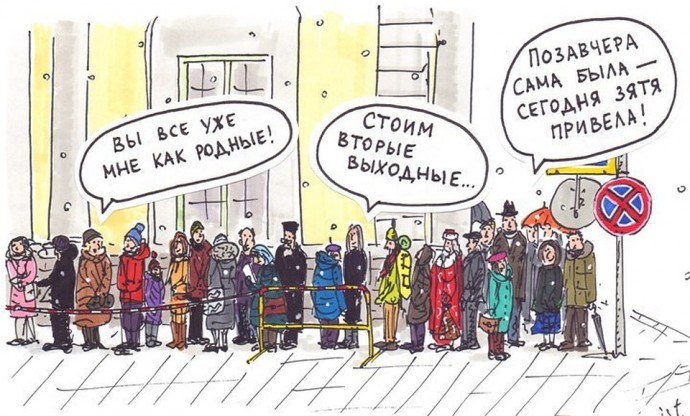 ВЫ ВСЕ УЖЕ
МНЕ КАК РОДНЫЕ!
СТОИМ
ВТОРЫЕ
ВЫХОДНЫЕ...
ПОЗАВЧЕРА
САМА БЫЛА —
СЕГОДНЯ ЗЯТЯ
ПРИВЕЛА!